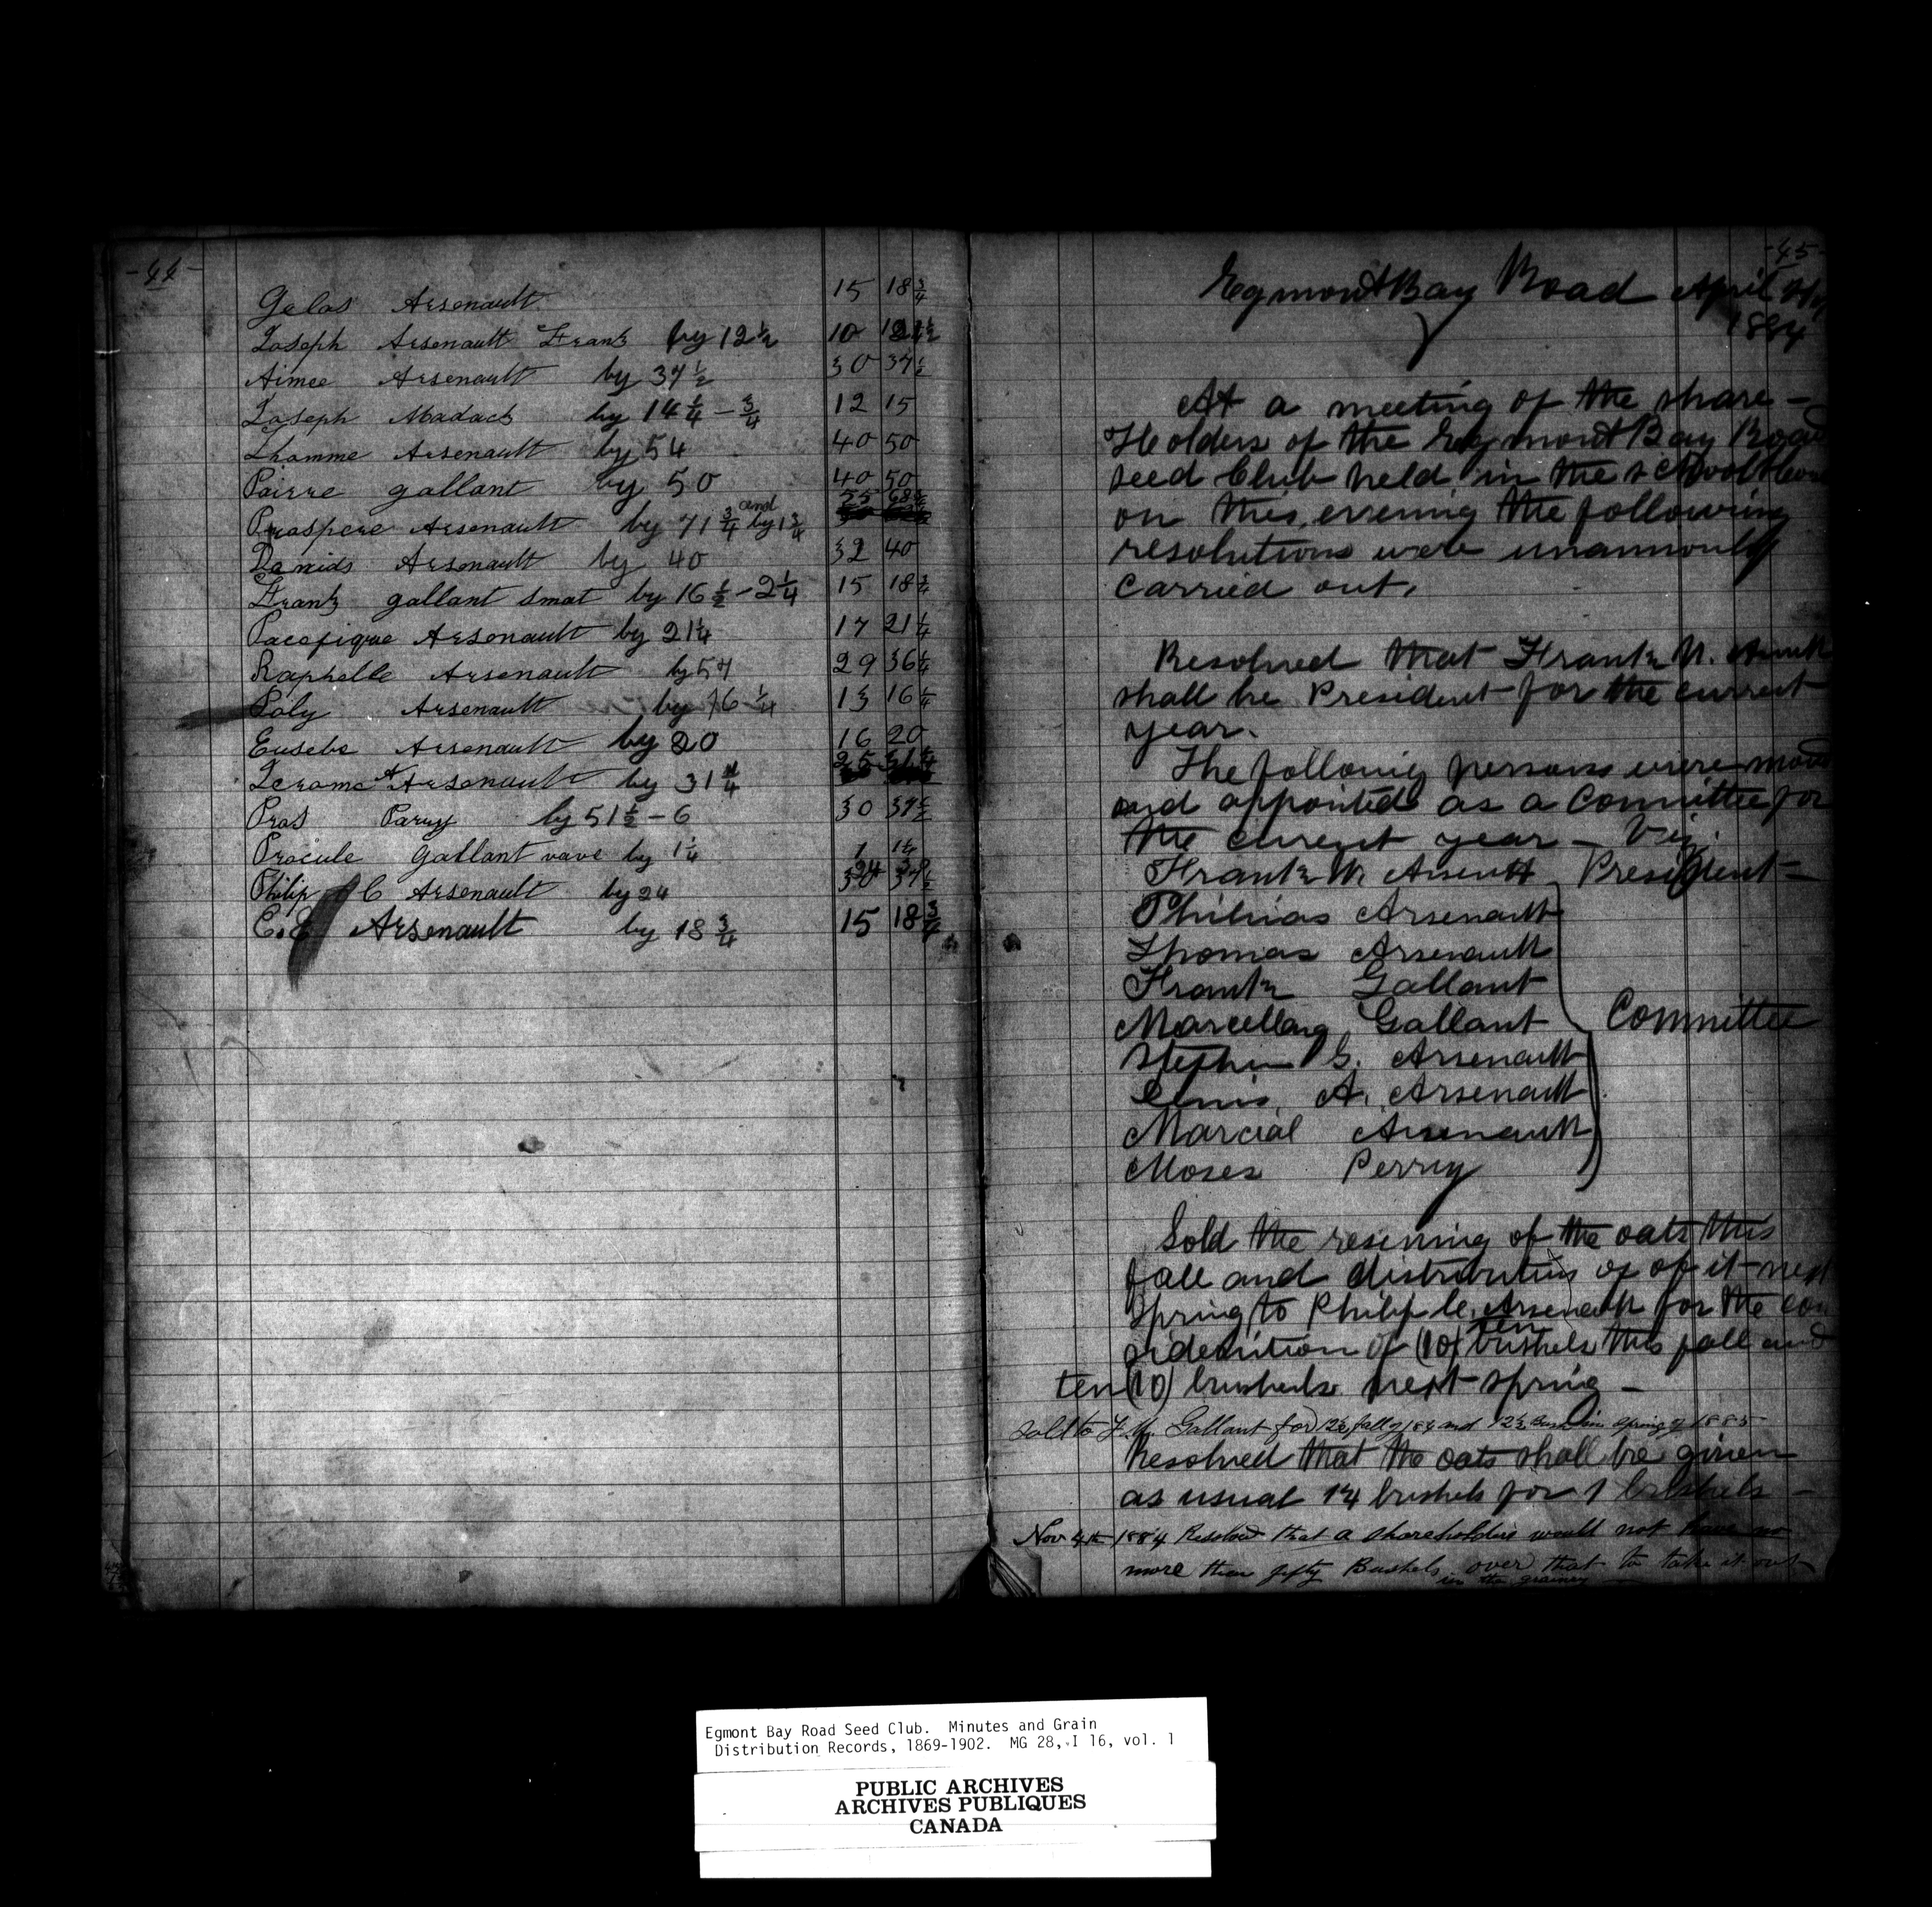 -44-
Gelas Arsenault 15 18 3/4
Joseph Arsenault Frank by 12 1/2 10 12 1/2
Aimee Arsenault by 37 1/2 30 37 1/2
Joseph by 14 1/4 - 3/4 12 15
Thomme Arsenault by 54 40 50
Pairre gallant by 50 40 50
Prospere Arsenault by 71 3/4 and by 1 3/4 55 68 3/4
Arsenault by 40 32 40
Frank gallant smat by 16 1/2 - 2 1/4 15 18 3/4
Pacifique Arsenault by 21 1/4 17 21 1/4
Raphelle Arsenault by 57 29 36 1/4
Poly Arsenault by 16 1/4 13 16 1/4
Eusebe Arsenault by 20 16 20
Jerome A Arsenault by 31 1/4 25 31 1/4
Pros Parry by 51 1/2 - 6 30 37 1/2
Procule Gallant vave by 1 1/4 1 1 1/4
Philip C Arsenault by 24 30 37 1/2
C. E Arsenault by 18 3/4 15 18 3/4
-45-
Egmont Bay Road April
1884
At a meeting of the share-
Holders of the Egmont Bay Road
seed Club held in the school
on this evening the following
resolutions were unanimously
carried out.
Resolved that Frank N.
shall be President for the current
year.
The followig persons were
and appointed as a Committee for
the current year - Viz.
Frank N. President-
Philias Arsenault
Thomas Arsenault
Frank Gallant
Marcellang Gallant
Committee
Stephen G. Arsenault
A. Arsenault
Marcial Arsenault
Moses Perry
Sold the reserving of the oats this
fall and distribution of of it next
Spring to Philip C. Arsenault for the con
of (10) ten bushels this fall and
ten (10) bushels next spring -
Sold to F. N. Gallant for 12 1/2 fall of 1884 and 12 1/2 Bush in spring of 1885
Resolved that the oats shall be given
as usual 1 1/4 bushels for 1 bushels -
Nov 4th 1884 Resolved that a shareholder would not have no
more than fifty Bushels over that to take it out
in the grainery
Egmont Bay Road Seed Club. Minutes and Grain
Distribution Records, 1869-1902. MG 28, I 16, vol. 1
PUBLIC ARCHIVES
ARCHIVES PUBLIQUES
CANADA